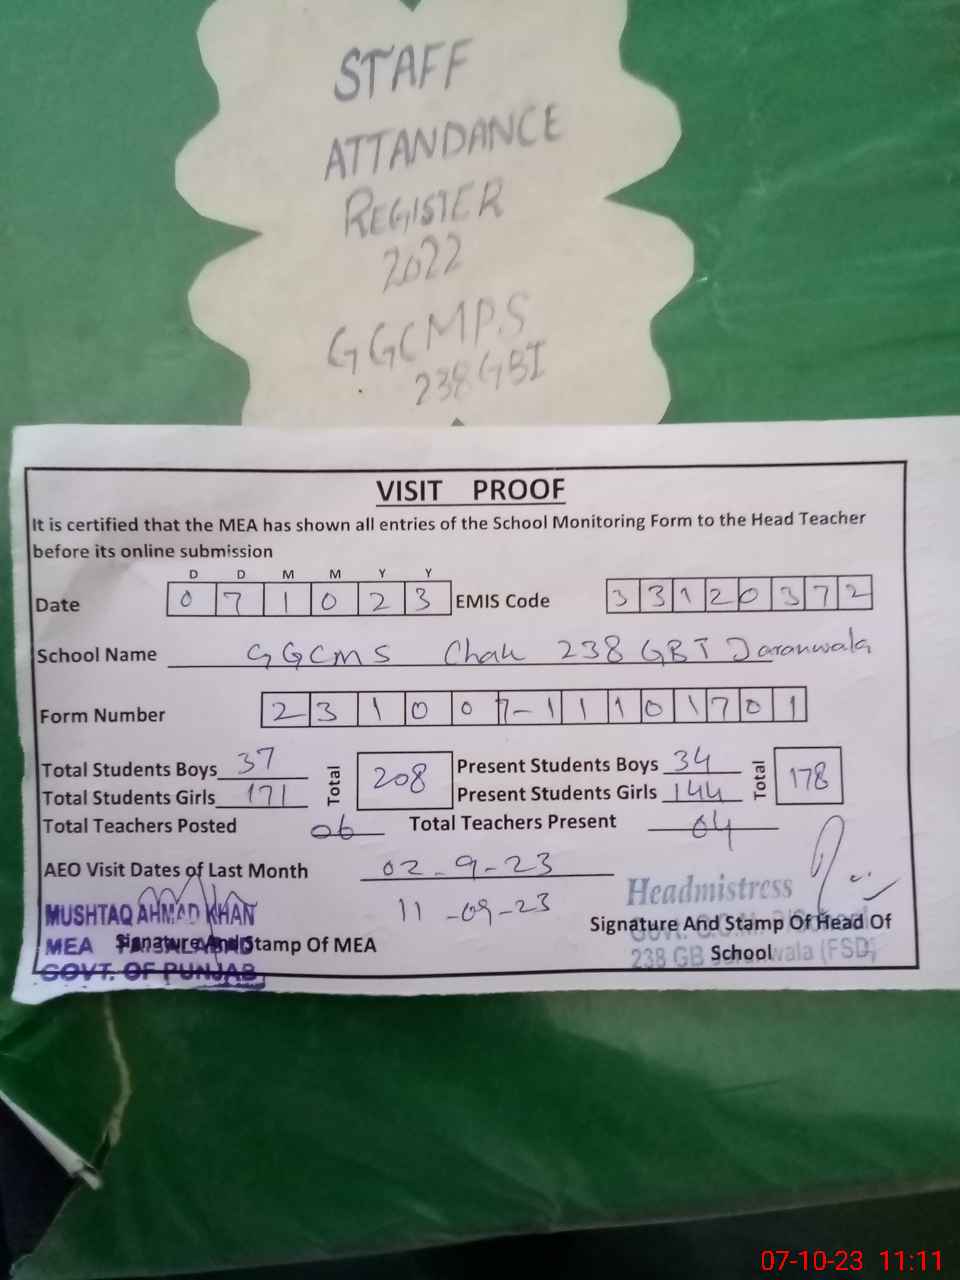 STAFF
ATTANDANCE
REGISTER
2022
GGCMPS
238 GBI
VISIT PROOF
It is certified that the MEA has shown all entries of the School Monitoring Form to the Head Teacher
before its online submission
D D M M Y Y
Date 0 7 1 0 2 3 EMIS Code 3 3 1 2 0 3 7 2
School Name GGCMS Chak 238 GBI Jaranwala
Form Number 2 3 1 0 0 7 - 1 1 1 0 1 7 0 1
Total Students Boys 37 Total 208 Present Students Boys 34 Total 178
Total Students Girls 171 Present Students Girls 144
Total Teachers Posted 06 Total Teachers Present 04
AEO Visit Dates of Last Month 02-9-23
11-09-23
Headmistress
MUSHTAQ AHMAD KHAN
Signature And Stamp Of Head Of
MEA FAISALABAD
Signature And Stamp Of MEA
School
238 GB Jaranwala (FSD)
GOVT. OF PUNJAB
07-10-23 11:11